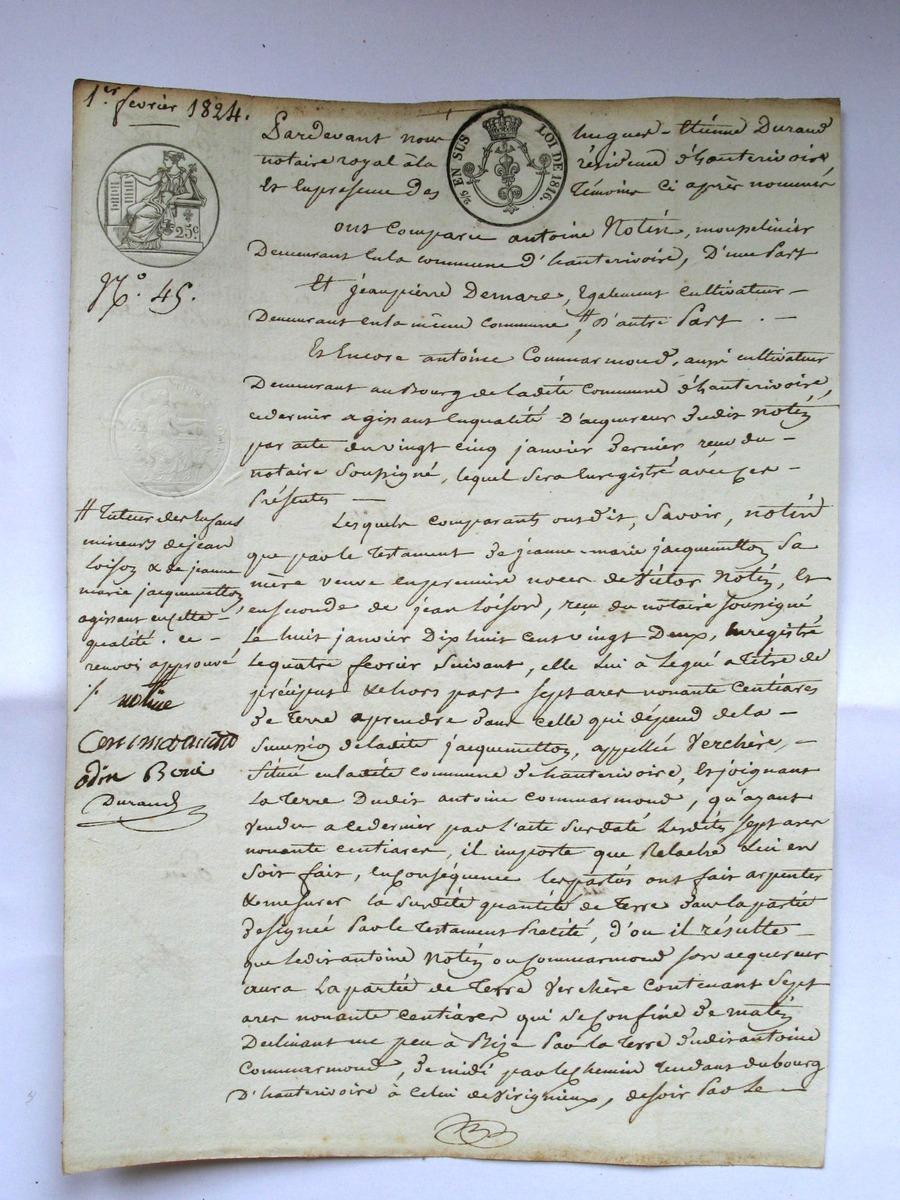 1er fevrier 1824.
Pardevant nous hugues-Etienne Durand
notaire royal à la résidence d'hauterivoire
Et En presence des Témoins ci après nommés
2/5 EN SUS LOI DE 1816.
25c
N.o 45.
ont comparu antoine Notin, mousselinier
Demeurant En la commune d'hauterivoire, D'une Part
Et jeanpierre Demare, Egalement cultivateur
Demeurant En la même commune, # D'autre Part. —
Et Encore antoine Commarmond, aussi cultivateur
Demeurant au Bourg de la dite commune d'hauterivoire,
ce dernier agissant En qualité D'acquereur dudit Notin
par acte du vingt cinq janvier dernier, reçu du
notaire Soussigné, lequel sera Enregistré avec ces
Présentes —
Lesquels comparants ont dit, Savoir, notin
que par le Testament de jeanne-marie jacquemetton Sa
mère veuve en premiere noces de Victor Notin, Et
en seconde de jean Loison, reçu du notaire soussigné
Le huit janvier Dix huit cent vingt Deux, Enregistré
Le quatre fevrier Suivant, elle lui à Legué a Titre de
préciput & hors part sept ares nonante centiares
de Terre aprendre dans celle qui dépend de la
Succession de la dite jacquemetton, appellée Verchère,
Située en la dite commune d'hauterivoire, Et joignant
La Terre Dudit antoine commarmond, qu'ayant
vendu a ce dernier par l'acte Susdaté Lesdits sept ares
nonante centiares, il importe que Relache Lui en
Soit fait, En conséquence les parties ont fait arpenter
& mesurer la Susdite quantité de Terre dans la partie
designée Par le Testament Précité, d'ou il résulte
que ledit antoine Notin ou Commarmond son acquereur
aura La partie de Terre Verchère contenant Sept
ares nonante centiares qui se Confine de matin
Declinant un peu à Bize Par la Terre dudit antoine
Commarmond, de midi par le chemin Tendant du bourg
D'hauterivoire à celui de Virignieux, de soir Par Le
# Tuteur des Enfans
mineurs de jean
Loison & de jeanne
marie jacquemetton,
agissant en cette
qualité. ce
renvoi approuvé
notine
Commarmond
odin
Durand